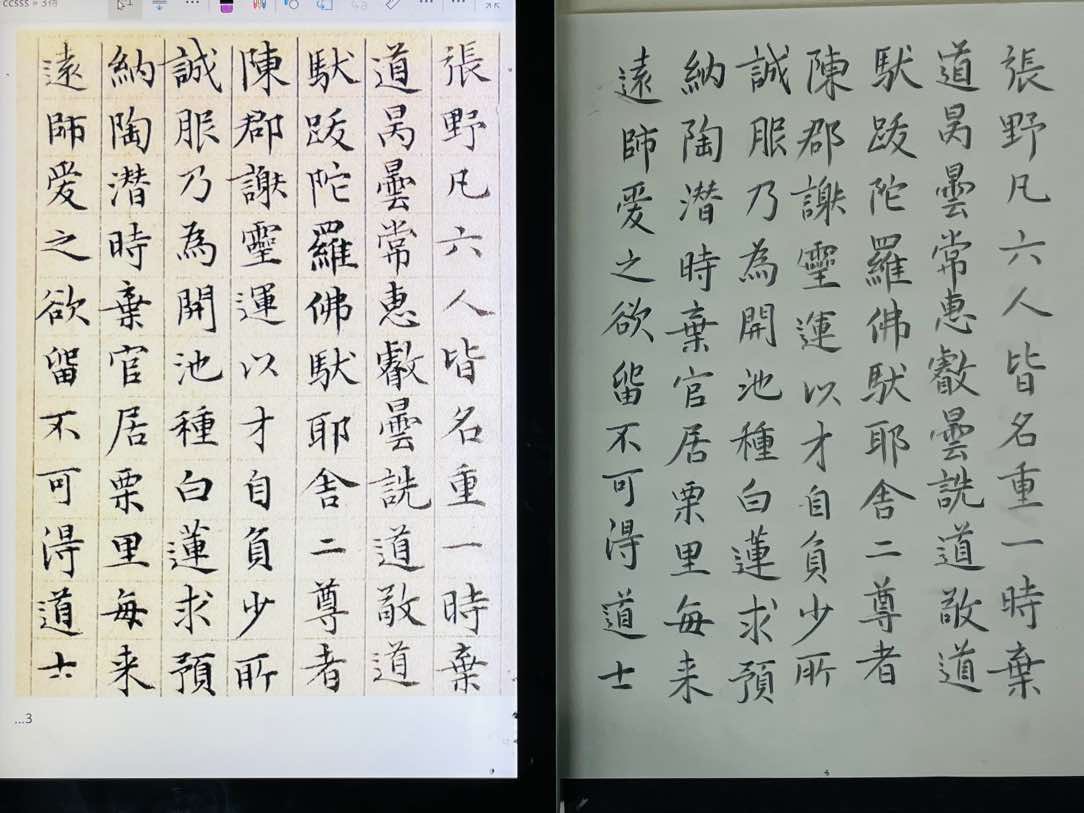 ccsss » 3倍
張野凡六人皆名重一時棄
道昺曇常惠叡曇詵道敬道
馱跋陀羅佛馱耶舍二尊者
陳郡謝靈運以才自負少所
誠服乃為開池種白蓮求預
納陶潛時棄官居栗里每来
遠師爱之欲留不可得道士
...3
張野凡六人皆名重一時棄
道昺曇常惠叡曇詵道敬道
馱跋陀羅佛馱耶舍二尊者
陳郡謝靈運以才自負少所
誠服乃為開池種白蓮求預
納陶潛時棄官居栗里每来
遠師爱之欲留不可得道士